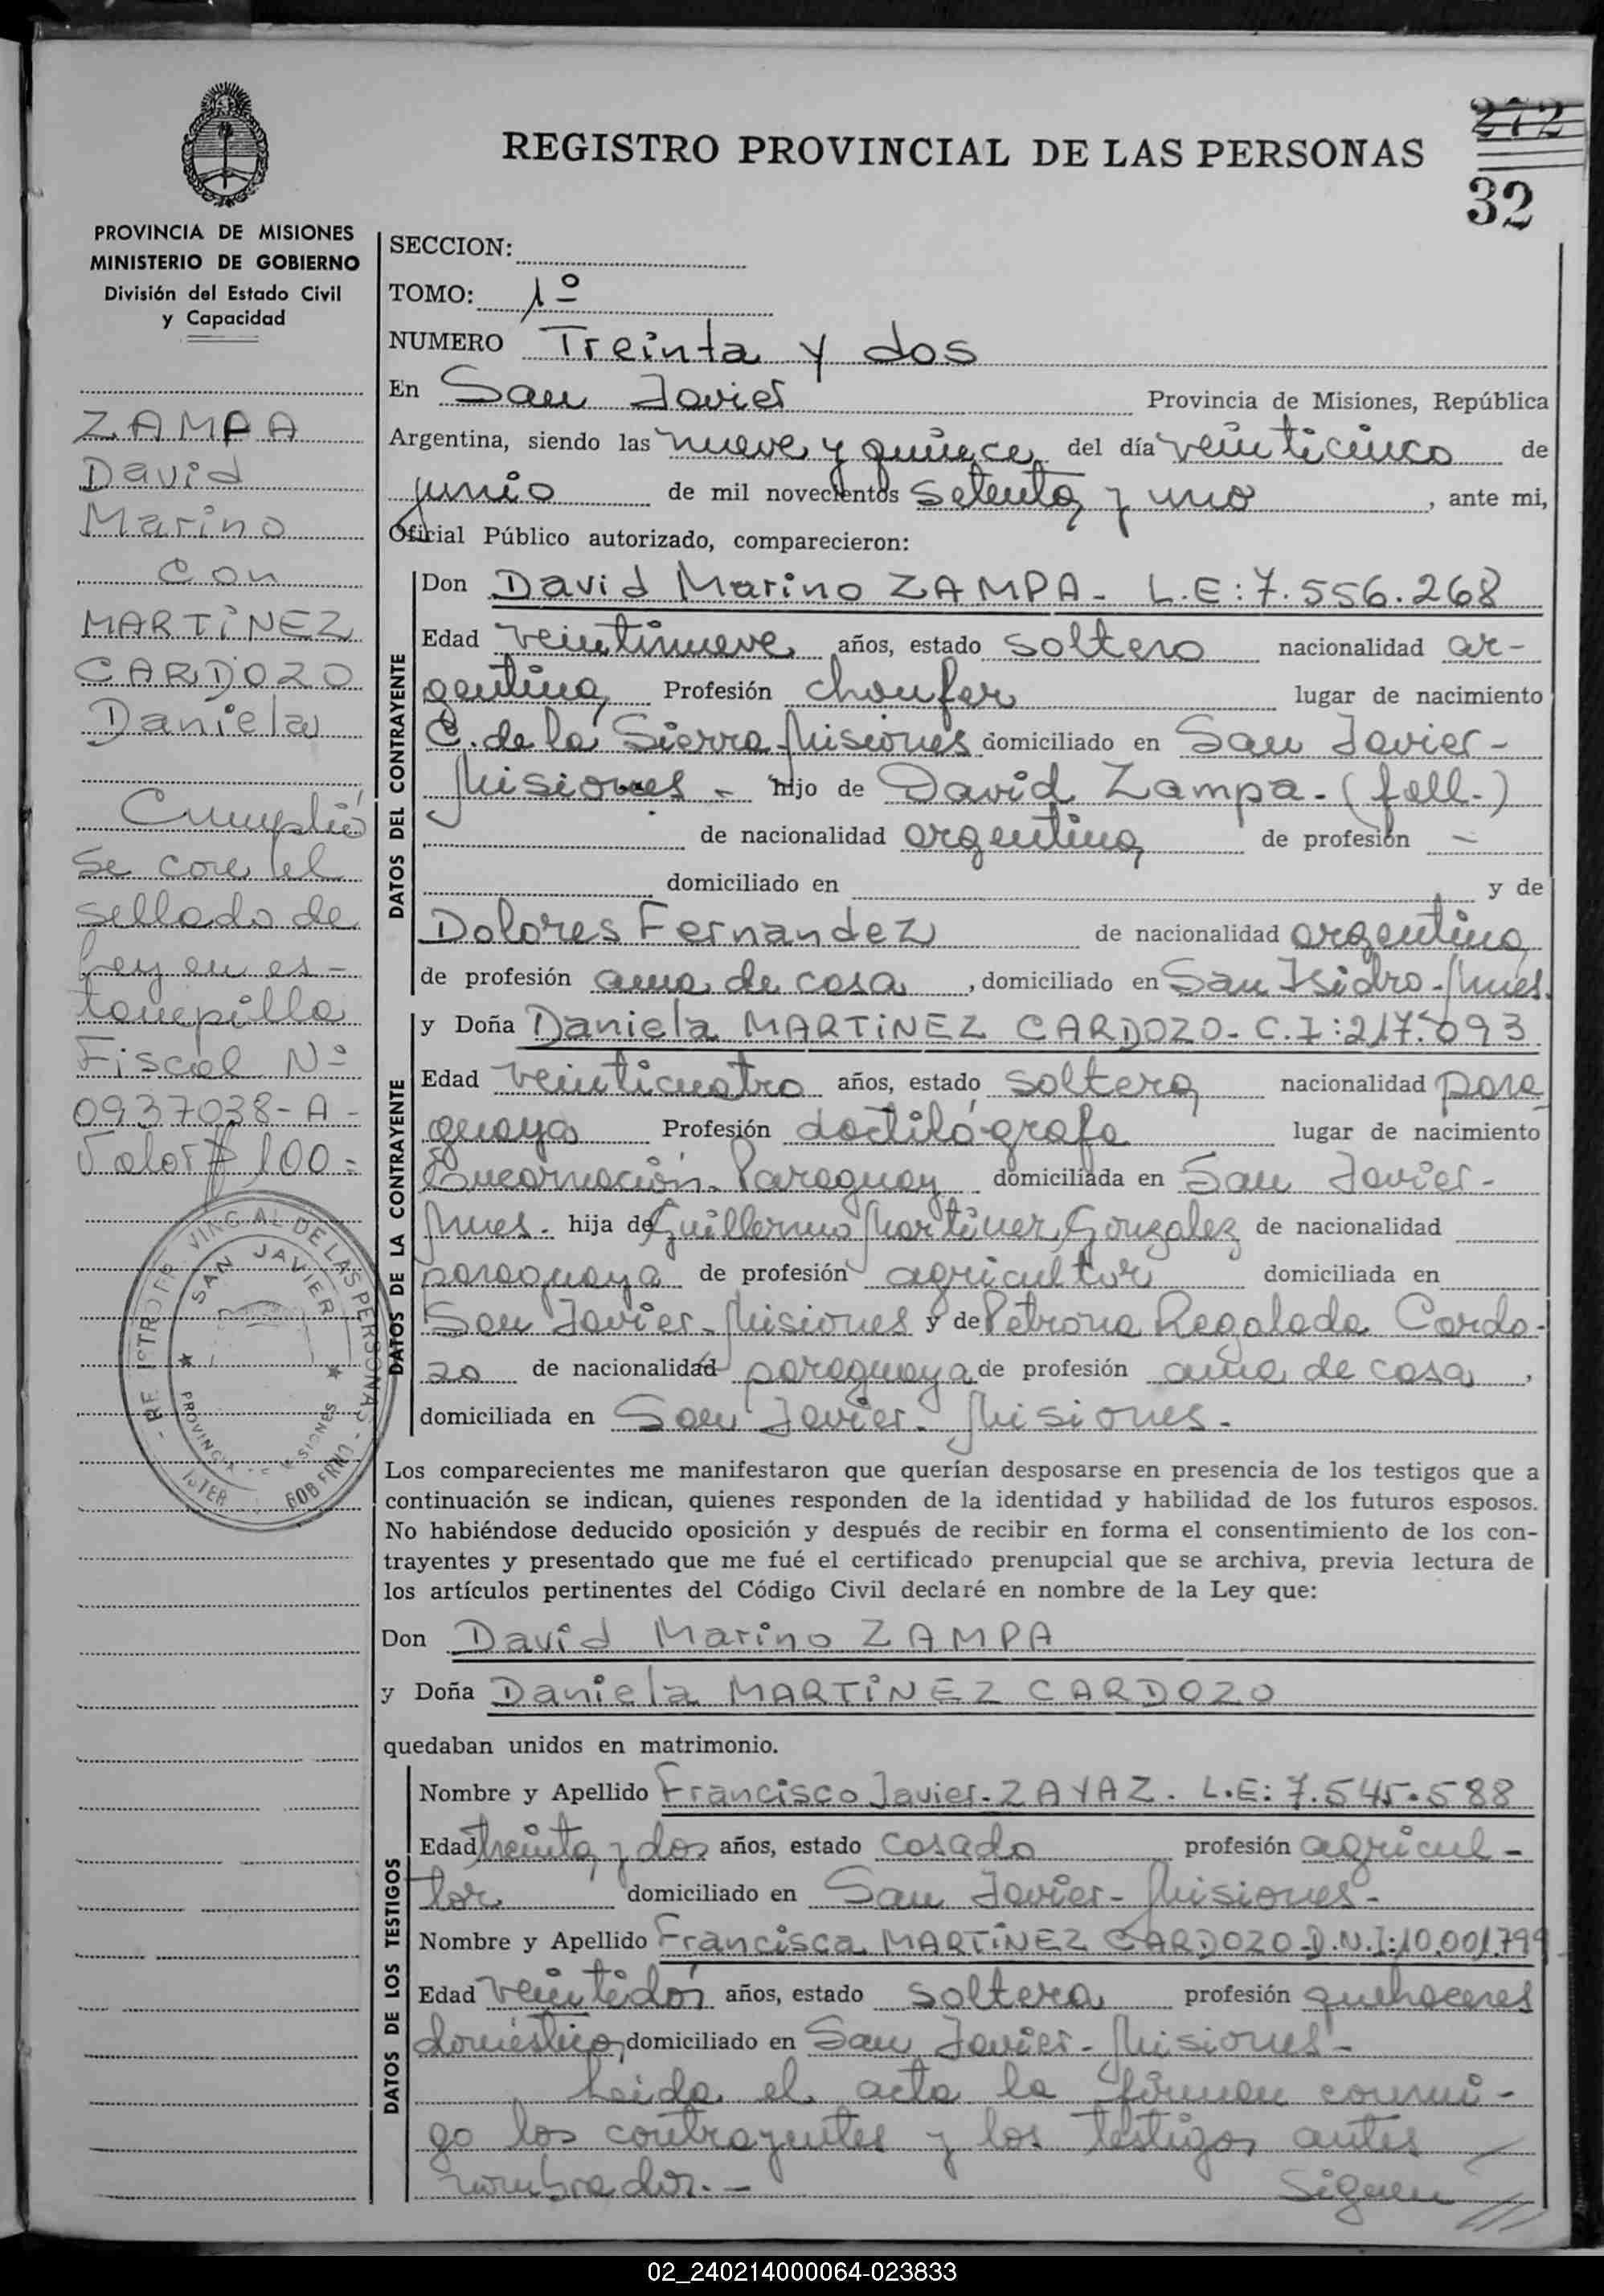 272
REGISTRO PROVINCIAL DE LAS PERSONAS
32
PROVINCIA DE MISIONES
MINISTERIO DE GOBIERNO
División del Estado Civil
y Capacidad
ZAMPA
David
Marino
con
MARTINEZ
CARDOZO
Daniela
Cumplió
se con el
sellado de
Ley en es-
tampilla
Fiscal Nº
0937038-A-
Valor $ 100=
SAN JAVIER
SECCION:
TOMO: 1º
NUMERO Treinta y dos
En San Javier Provincia de Misiones, República
Argentina, siendo las nueve y quince del día veinticinco de
junio de mil novecientos setenta y uno, ante mi,
Oficial Público autorizado, comparecieron:
DATOS DEL CONTRAYENTE
Don David Marino ZAMPA- L.E:7.556.268
Edad veintinueve años, estado soltero nacionalidad ar-
gentina Profesión choufer lugar de nacimiento
C. de la Sierra-Misiones domiciliado en San Javier-
Misiones - hijo de David Zampa-(fall-)
de nacionalidad argentina de profesión -
domiciliado en y de
Dolores Fernandez de nacionalidad argentina
de profesión ama de casa, domiciliado en San Isidro-Mnes.
DATOS DE LA CONTRAYENTE
y Doña Daniela MARTINEZ CARDOZO- C.I:217.093
Edad veinticuatro años, estado soltera nacionalidad para
guaya Profesión dactilógrafa lugar de nacimiento
Encarnación-Paraguay domiciliada en San Javier-
Mnes- hija de Guillermo Martinez Gonzalez de nacionalidad
paraguaya de profesión agricultor domiciliada en
San Javier-Misiones y de Petrona Regalada Cardo-
zo de nacionalidad paraguaya de profesión ama de casa,
domiciliada en San Javier- Misiones-
Los comparecientes me manifestaron que querían desposarse en presencia de los testigos que a
continuación se indican, quienes responden de la identidad y habilidad de los futuros esposos.
No habiéndose deducido oposición y después de recibir en forma el consentimiento de los con-
trayentes y presentado que me fué el certificado prenupcial que se archiva, previa lectura de
los artículos pertinentes del Código Civil declaré en nombre de la Ley que:
Don David Marino ZAMPA
y Doña Daniela MARTINEZ CARDOZO
quedaban unidos en matrimonio.
DATOS DE LOS TESTIGOS
Nombre y Apellido Francisco Javier-ZAYAZ- L.E:7.545.588
Edad treinta y dos años, estado casado profesión agricul-
tor domiciliado en San Javier-Misiones-
Nombre y Apellido Francisca MARTINEZ CARDOZO-D.N.I:10.001.799
Edad veintidós años, estado soltera profesión quehaceres
domésticos domiciliado en San Javier-Misiones-
Leida el acta la firman conmi-
go los contrayentes y los testigos antes
nombrados.-
Siguen ///
02_240214000064-023833